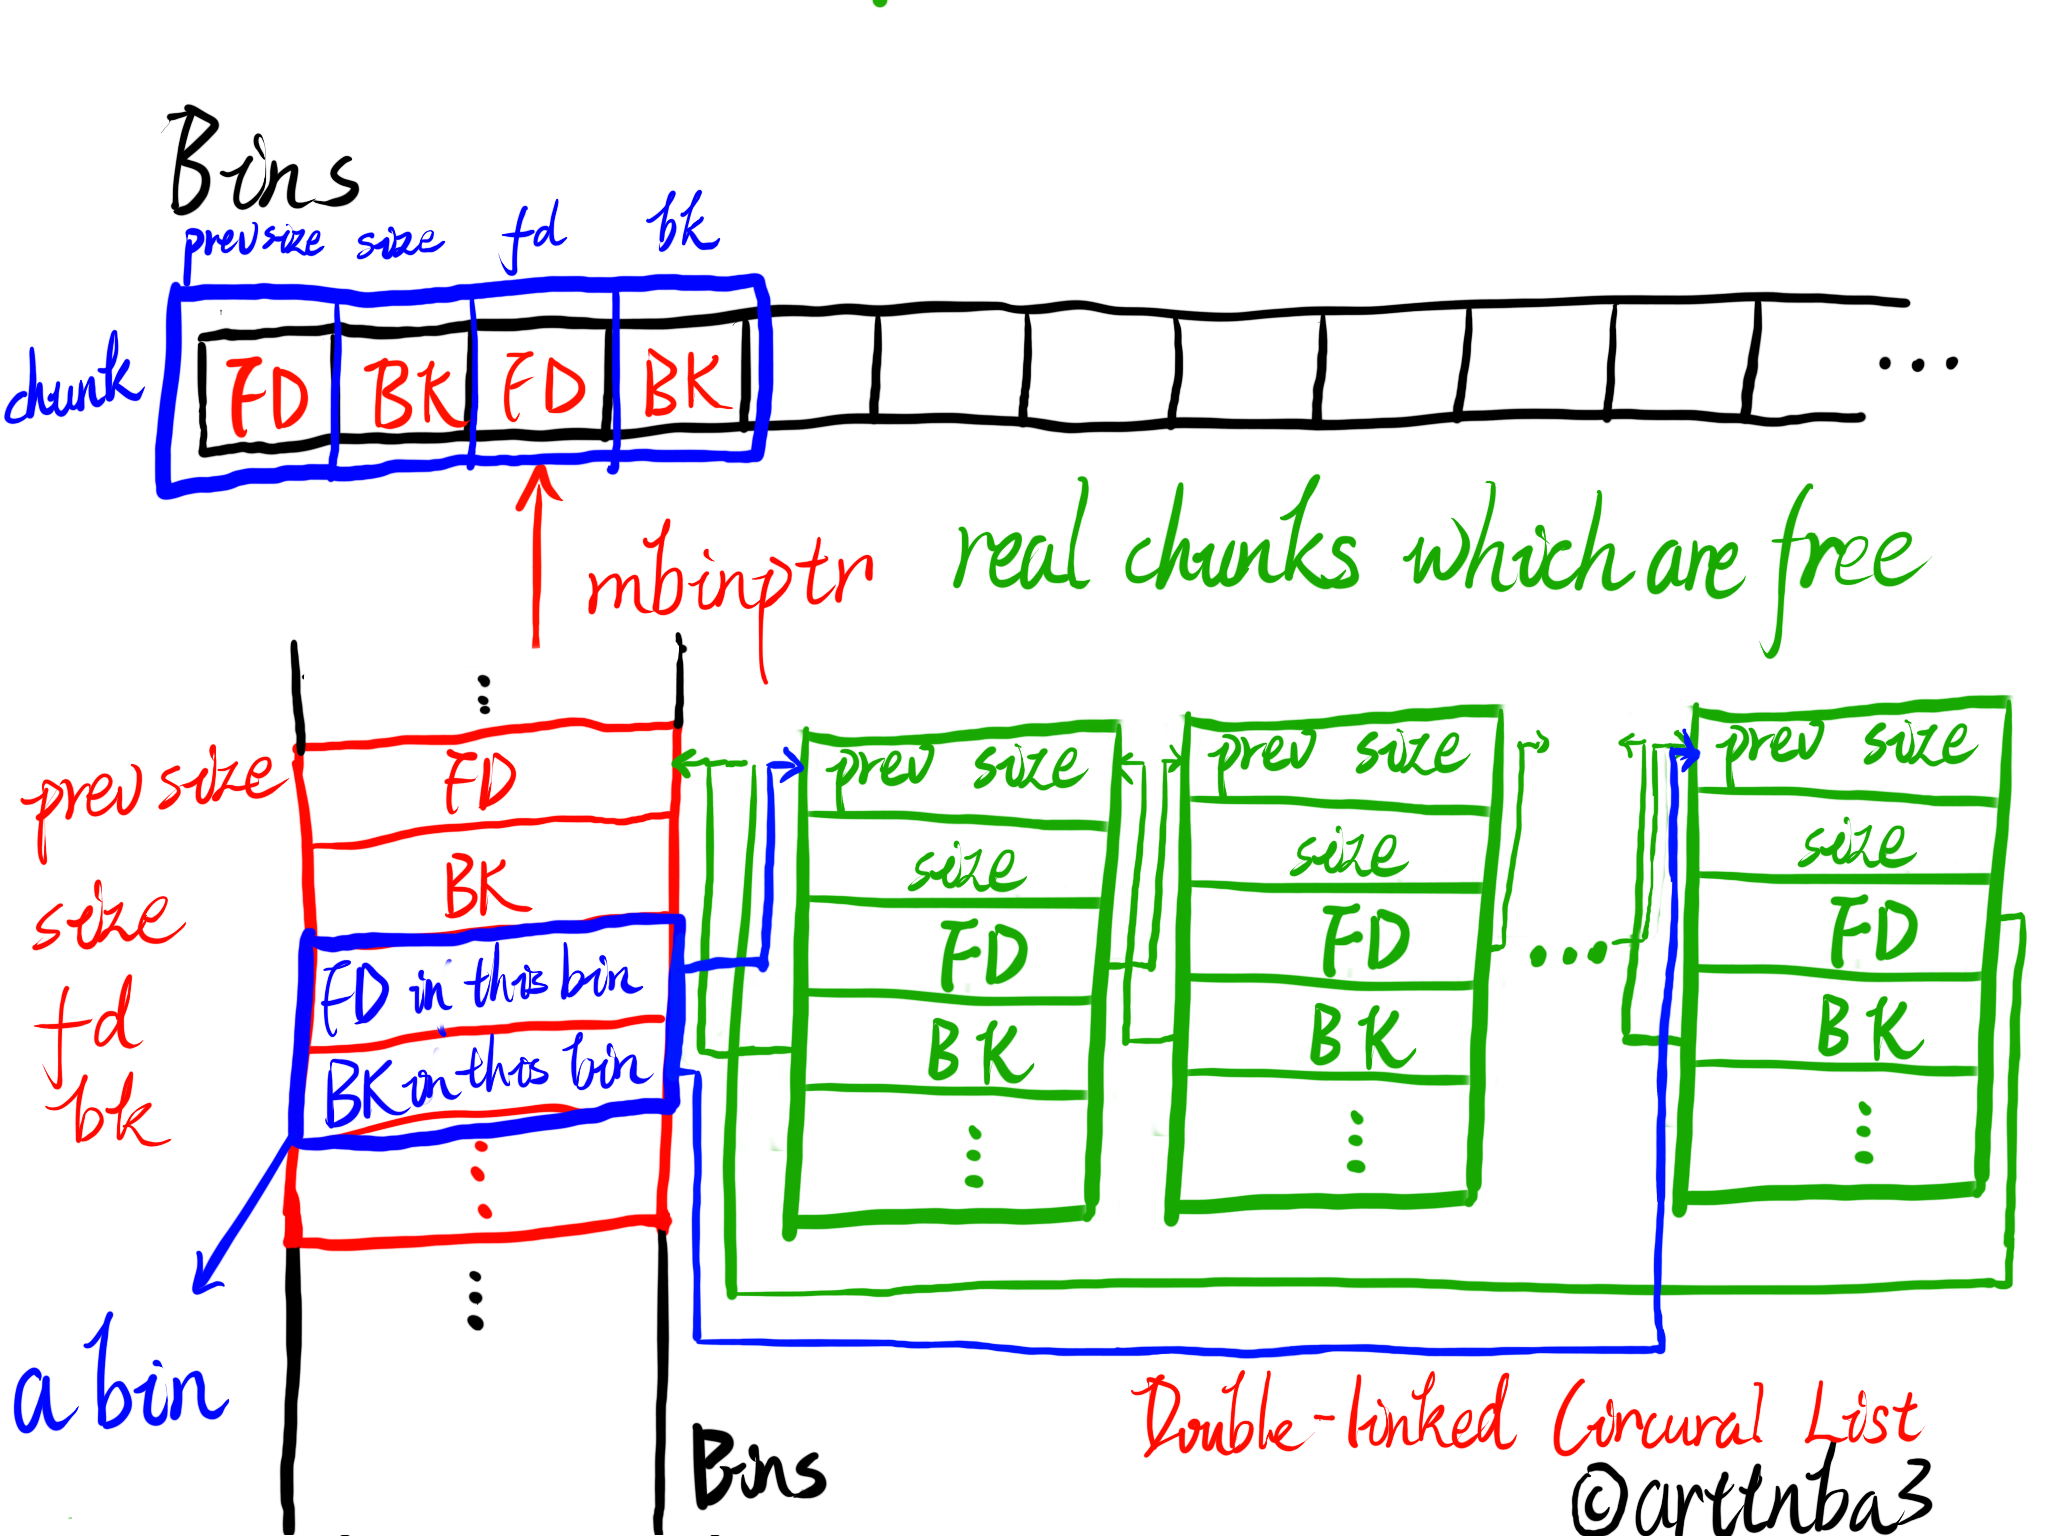 Bins
prevsize size fd bk
chunk
FD BK FD BK ...
mbinptr
real chunks which are free
prev size
size
fd
bk
FD
BK
FD in this bin
BK in this bin
a bin
Bins
prev size
size
FD
BK
prev size
size
FD
BK
...
prev size
size
FD
BK
Double-linked Circural List
©arttnba3